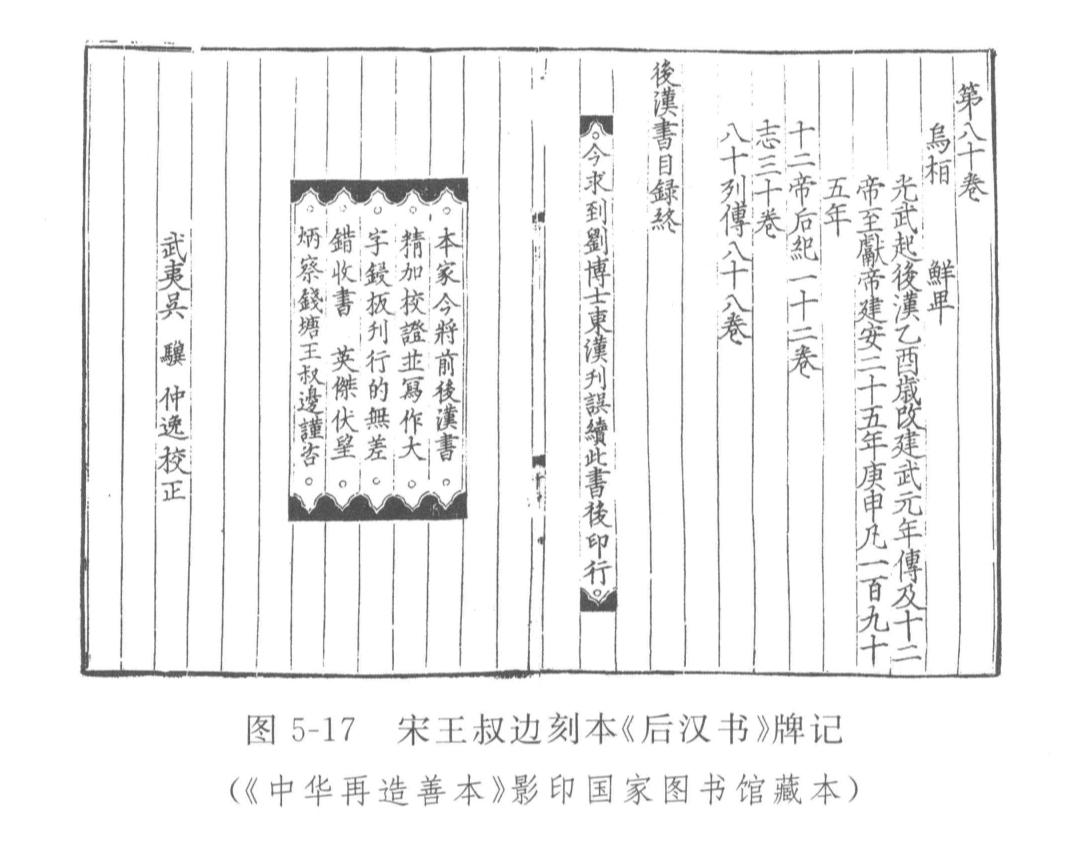 第八十卷
烏桓　鮮卑
光武起後漢乙酉歲改建武元年傳及十二
帝至獻帝建安二十五年庚申凡一百九十
五年
十二帝后紀一十二卷
志三十卷
八十列傳八十八卷
後漢書目録終
今求到劉博士東漢刋誤續此書後印行
本家今將前後漢書
精加校證並寫作大
字鋟板刋行的無差
錯收書　英傑伏望
炳察錢塘王叔邊謹咨
武夷吳　驥　仲逸校正
图 5-17　宋王叔边刻本《后汉书》牌记
（《中华再造善本》影印国家图书馆藏本）